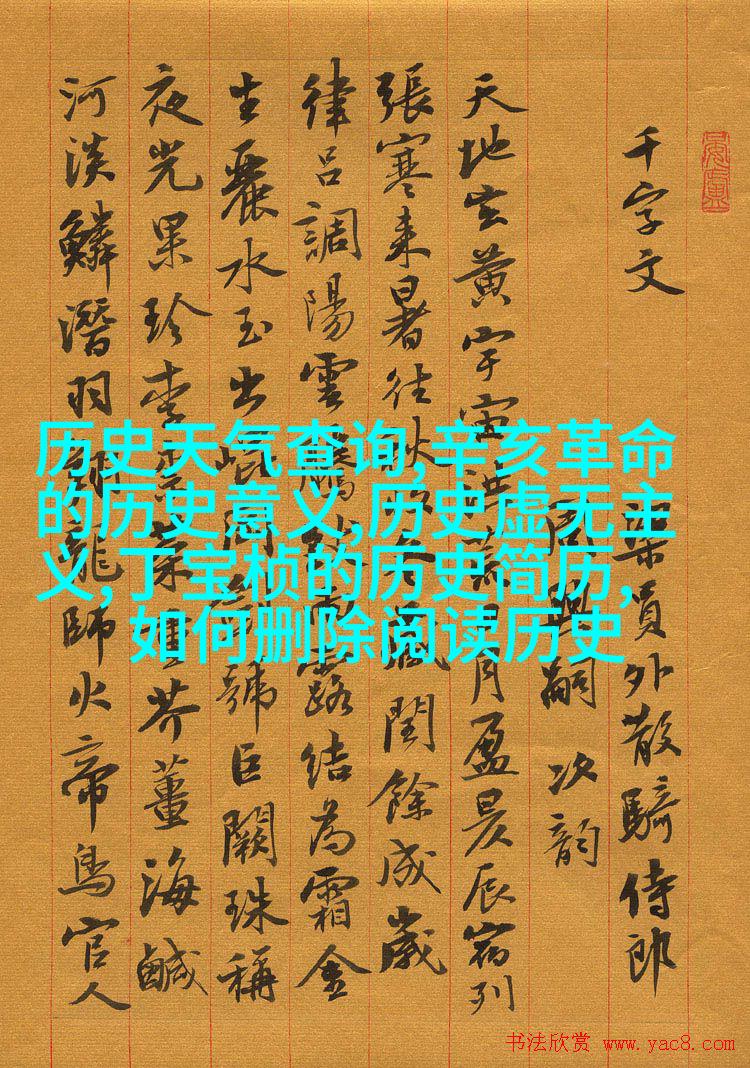 千字文
梁員外散騎侍郎
周興嗣次韵
天地玄黃宇宙洪荒日月盈昃辰宿列
張寒来暑往秋收冬藏閏餘成歲
律呂調陽雲騰致雨露结為霜金
生麗水玉出崐岡劍號巨闕珠稱
夜光果珍李柰菜重芥薑海鹹
河淡鱗潛羽翔龍師火帝鳥官人
历史天气查询,辛亥革命
的历史意义,历史虚无主
义,丁宝桢的历史简历,
如何删除阅读历史
书法欣赏 www.yac8.com